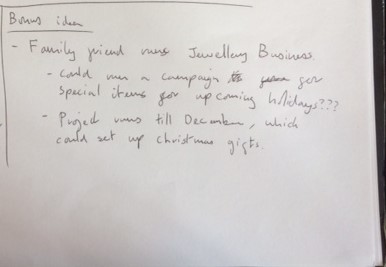 Bonus idea
- Family friend runs Jewellery Business.
- Could run a campaign for
special items for upcoming holidays???
- Project runs till December, which
could set up christmas gifts.